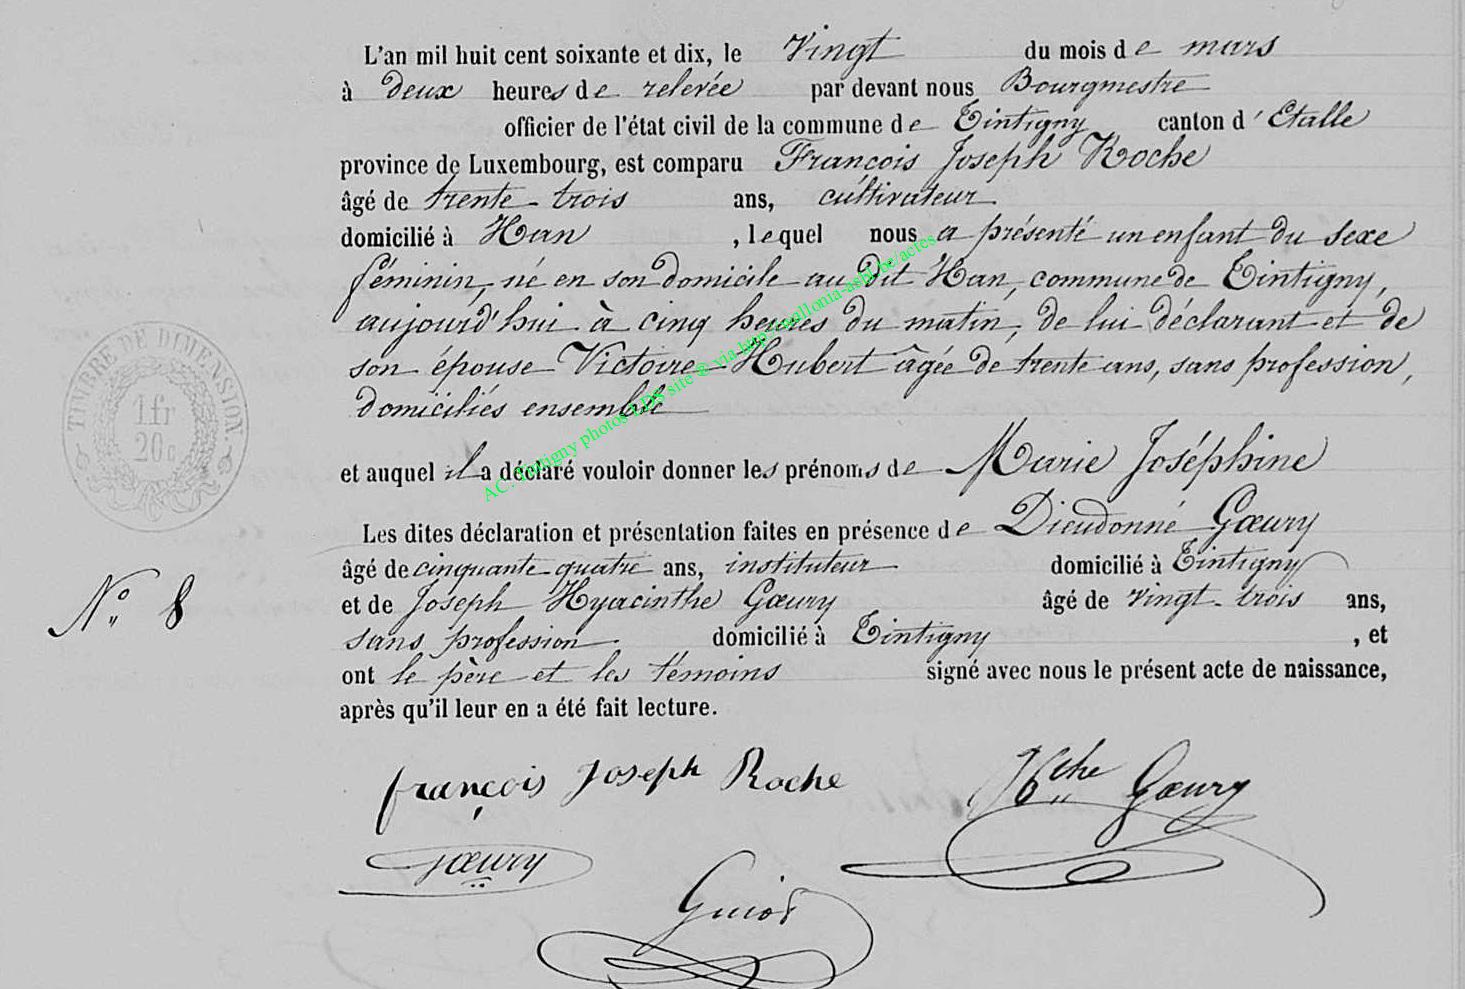 L'an mil huit cent soixante et dix, le Vingt du mois de mars
à deux heures de relevée par devant nous Bourgmestre
officier de l'état civil de la commune de Tintigny canton d'Etalle
province de Luxembourg, est comparu François Joseph Roche
âgé de trente-trois ans, cultivateur
domicilié à Han, lequel nous a présenté un enfant du sexe
féminin, né en son domicile au dit Han, commune de Tintigny,
aujourd'hui à cinq heures du matin, de lui déclarant et de
son épouse Victoire Hubert âgée de trente ans, sans profession,
domiciliés ensemble
et auquel il a déclaré vouloir donner les prénoms de Marie Joséphine
Les dites déclaration et présentation faites en présence de Dieudonné Gœury
âgé de cinquante quatre ans, instituteur domicilié à Tintigny
N° 8
et de Joseph Hyacinthe Gœury âgé de vingt-trois ans,
sans profession domicilié à Tintigny, et
ont le père et les témoins signé avec nous le présent acte de naissance,
après qu'il leur en a été fait lecture.
françois Joseph Roche
Hthe Gœury
Gœury
Guiot
TIMBRE DE DIMENSION.
1 fr
20 c
AC. Tintigny photos LDS site @ via http://wallonia-asbl.be/actes